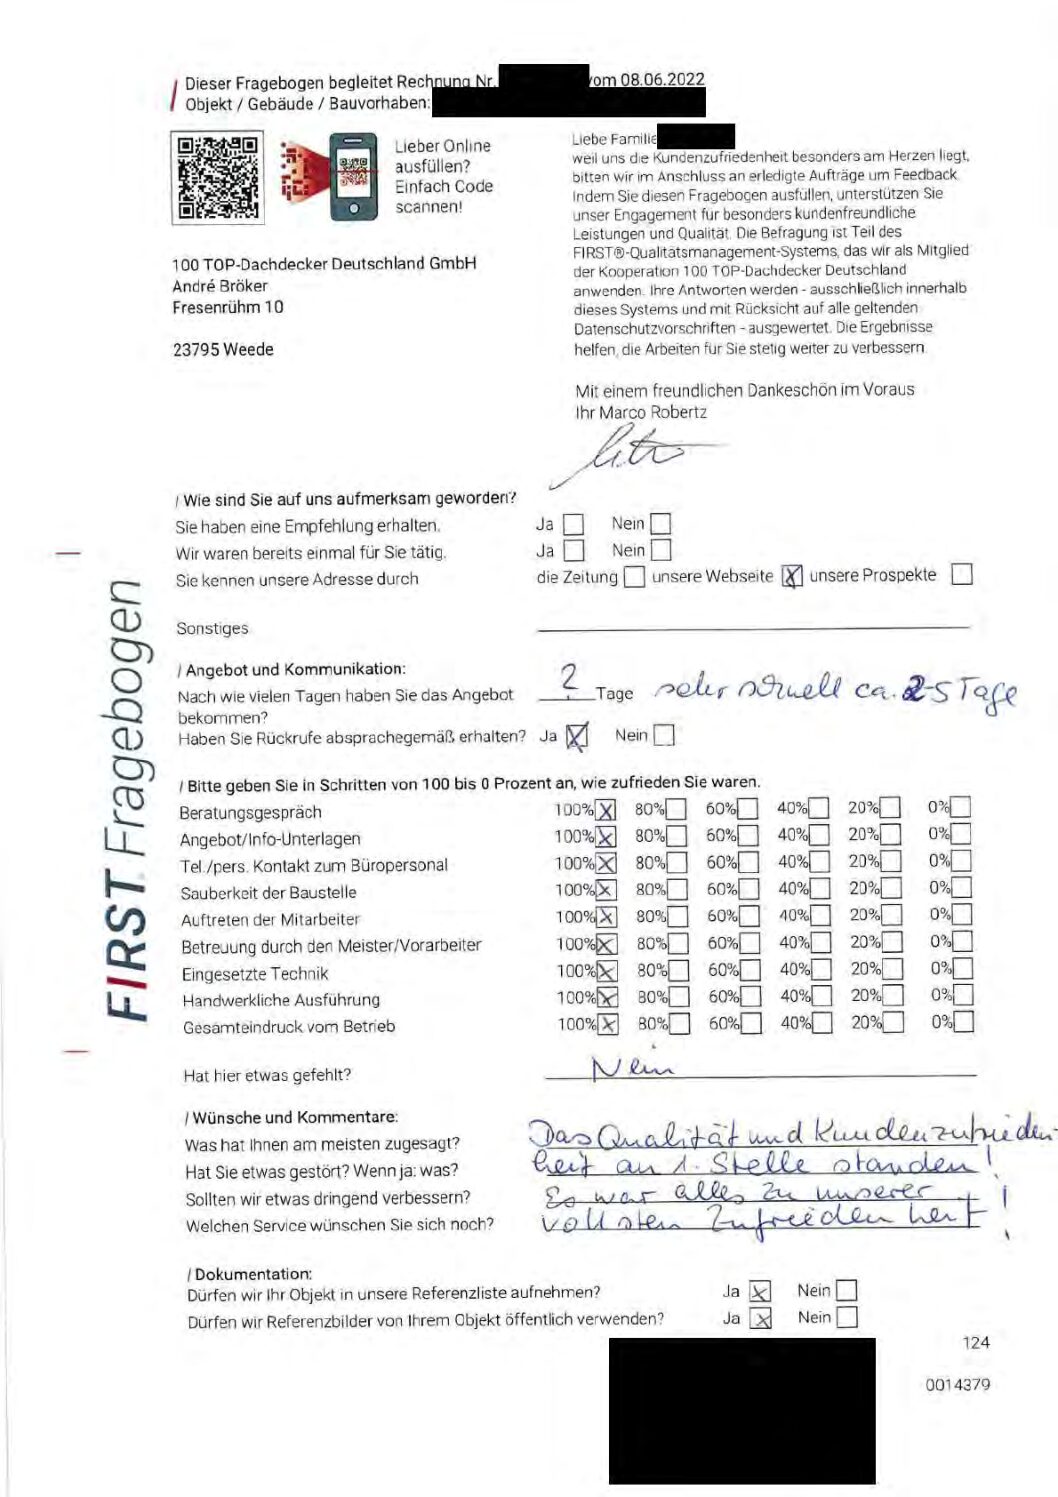 Dieser Fragebogen begleitet Rechnung Nr. vom 08.06.2022
Objekt / Gebäude / Bauvorhaben:
Lieber Online
ausfüllen?
Einfach Code
scannen!
100 TOP-Dachdecker Deutschland GmbH
André Bröker
Fresenrühm 10
23795 Weede
Liebe Familie
weil uns die Kundenzufriedenheit besonders am Herzen liegt,
bitten wir im Anschluss an erledigte Aufträge um Feedback.
Indem Sie diesen Fragebogen ausfüllen, unterstützen Sie
unser Engagement für besonders kundenfreundliche
Leistungen und Qualität. Die Befragung ist Teil des
FIRST®-Qualitätsmanagement-Systems, das wir als Mitglied
der Kooperation 100 TOP-Dachdecker Deutschland
anwenden. Ihre Antworten werden - ausschließlich innerhalb
dieses Systems und mit Rücksicht auf alle geltenden
Datenschutzvorschriften - ausgewertet. Die Ergebnisse
helfen, die Arbeiten für Sie stetig weiter zu verbessern.
Mit einem freundlichen Dankeschön im Voraus
Ihr Marco Robertz
FIRST Fragebogen
/ Wie sind Sie auf uns aufmerksam geworden?
Sie haben eine Empfehlung erhalten. Ja Nein
Wir waren bereits einmal für Sie tätig. Ja Nein
Sie kennen unsere Adresse durch die Zeitung unsere Webseite X unsere Prospekte
Sonstiges
/ Angebot und Kommunikation:
Nach wie vielen Tagen haben Sie das Angebot ? Tage sehr schnell ca. 2-5 Tage
bekommen?
Haben Sie Rückrufe absprachegemäß erhalten? Ja X Nein
/ Bitte geben Sie in Schritten von 100 bis 0 Prozent an, wie zufrieden Sie waren.
Beratungsgespräch 100% X 80% 60% 40% 20% 0%
Angebot/Info-Unterlagen 100% X 80% 60% 40% 20% 0%
Tel./pers. Kontakt zum Büropersonal 100% X 80% 60% 40% 20% 0%
Sauberkeit der Baustelle 100% X 80% 60% 40% 20% 0%
Auftreten der Mitarbeiter 100% X 80% 60% 40% 20% 0%
Betreuung durch den Meister/Vorarbeiter 100% X 80% 60% 40% 20% 0%
Eingesetzte Technik 100% X 80% 60% 40% 20% 0%
Handwerkliche Ausführung 100% X 80% 60% 40% 20% 0%
Gesamteindruck vom Betrieb 100% X 80% 60% 40% 20% 0%
Hat hier etwas gefehlt? Nein
/ Wünsche und Kommentare:
Was hat Ihnen am meisten zugesagt? Das Qualität und Kundenzufrieden-
Hat Sie etwas gestört? Wenn ja: was? heit an 1. Stelle standen!
Sollten wir etwas dringend verbessern? Es war alles zu unserer
Welchen Service wünschen Sie sich noch? vollsten Zufriedenheit!
/ Dokumentation:
Dürfen wir Ihr Objekt in unsere Referenzliste aufnehmen? Ja X Nein
Dürfen wir Referenzbilder von Ihrem Objekt öffentlich verwenden? Ja X Nein
124
0014379